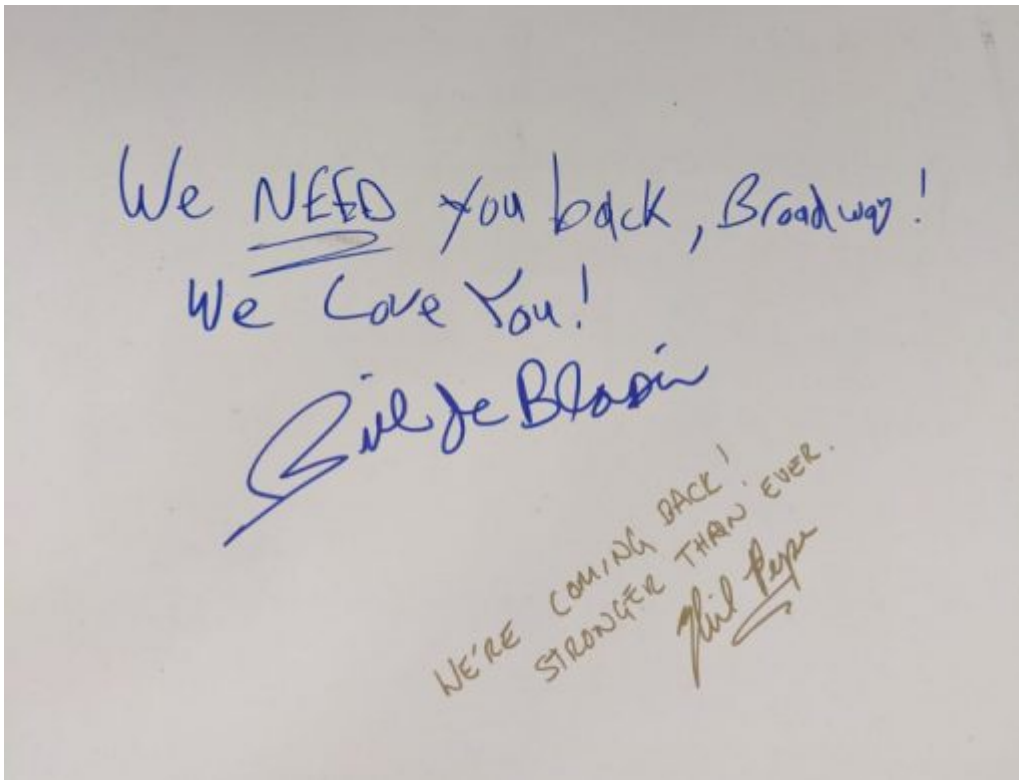 We NEED you back, Broadway!
We Love You!
Bill de Blasio
WE'RE COMING BACK!
STRONGER THAN EVER.
Phil Pepe